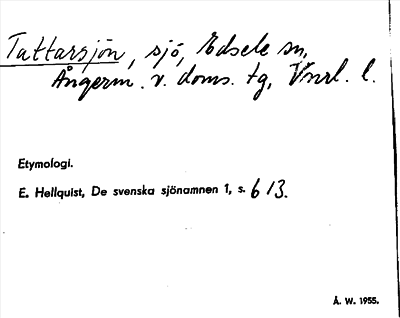 Tattarsjön, sjö, Edsele sn,
Ångerm. v. doms. tg, Vnrl. l.
Etymologi.
E. Hellquist, De svenska sjönamnen 1, s. 613.
Å. W. 1955.